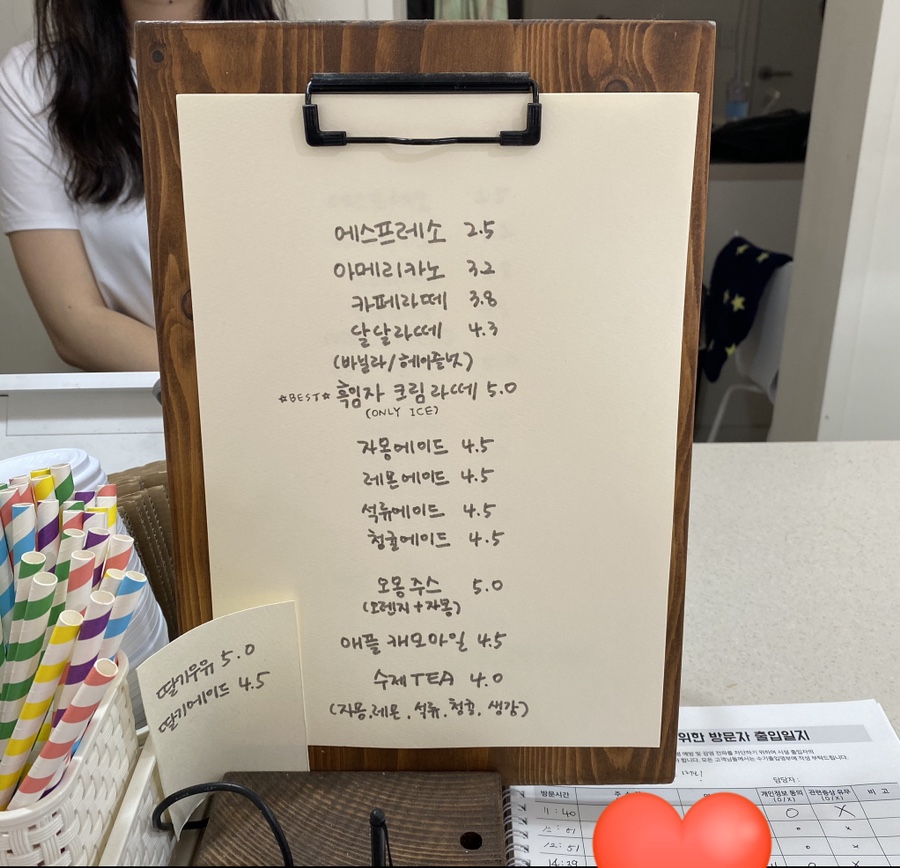 에스프레소 2.5
아메리카노 3.2
카페라떼 3.8
달달라떼 4.3
(바닐라/헤이즐넛)
☆BEST☆ 흑임자 크림라떼 5.0
(ONLY ICE)
자몽에이드 4.5
레몬에이드 4.5
석류에이드 4.5
청귤에이드 4.5
오몽주스 5.0
(오렌지+자몽)
애플캐모마일 4.5
수제TEA 4.0
(자몽,레몬,석류,청귤,생강)
딸기우유 5.0
딸기에이드 4.5
위한 방문자 출입일지
담당자 :
방문시간 개인정보 동의 관련증상 유무 비 고
(O/X) (O/X)
11:40 O X
12:51
14:29